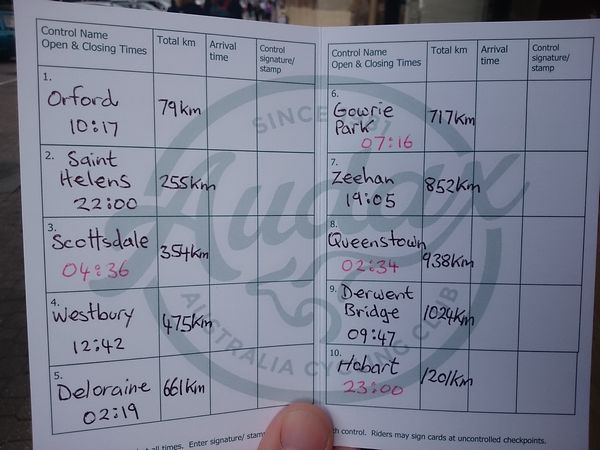 Control Name
Open & Closing Times
Total km
Arrival
time
Control
signature/
stamp
1.
Orford
10:17
79km
2. Saint
Helens
22:00
255km
3.
Scottsdale
04:36
354km
4.
Westbury
12:42
475km
5.
Deloraine
02:19
661km
Control Name
Open & Closing Times
Total km
Arrival
time
Control
signature/
stamp
6.
Gowrie
Park
07:16
717km
7.
Zeehan
19:05
852km
8.
Queenstown
02:34
938km
9. Derwent
Bridge
09:47
1024km
10.
Hobart
23:00
1201km
SINCE
Audax
AUSTRALIA CYCLING CLUB
all times. Enter signature/ stamp
control. Riders may sign cards at uncontrolled checkpoints.